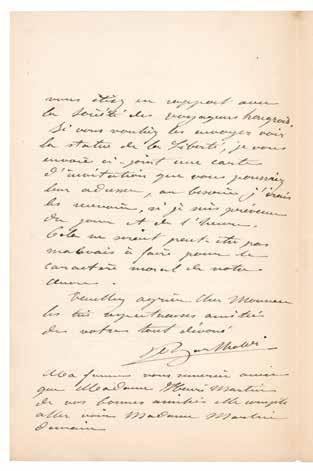 vous êtiez en rapport avec
la Société des voyageurs hongrois.
Si vous vouliez les envoyer voir
la statue de la Liberté, je vous
envoie ci-joint une carte
d'invitation que vous pourriez
leur adresser, au besoin j'irais
les recevoir, si je suis prévenu
du jour et de l'heure.
Cela ne serait peut-être pas
mauvais à faire pour le
caractère moral de notre
œuvre.
Veuillez agréer cher Monsieur
les très respectueuses amitiés
de votre tout dévoué
Bartholdi
Ma femme vous remercie ainsi
que Madame Henri Martin
de vos bonnes amitiés elle compte
aller voir Madame Martin
demain